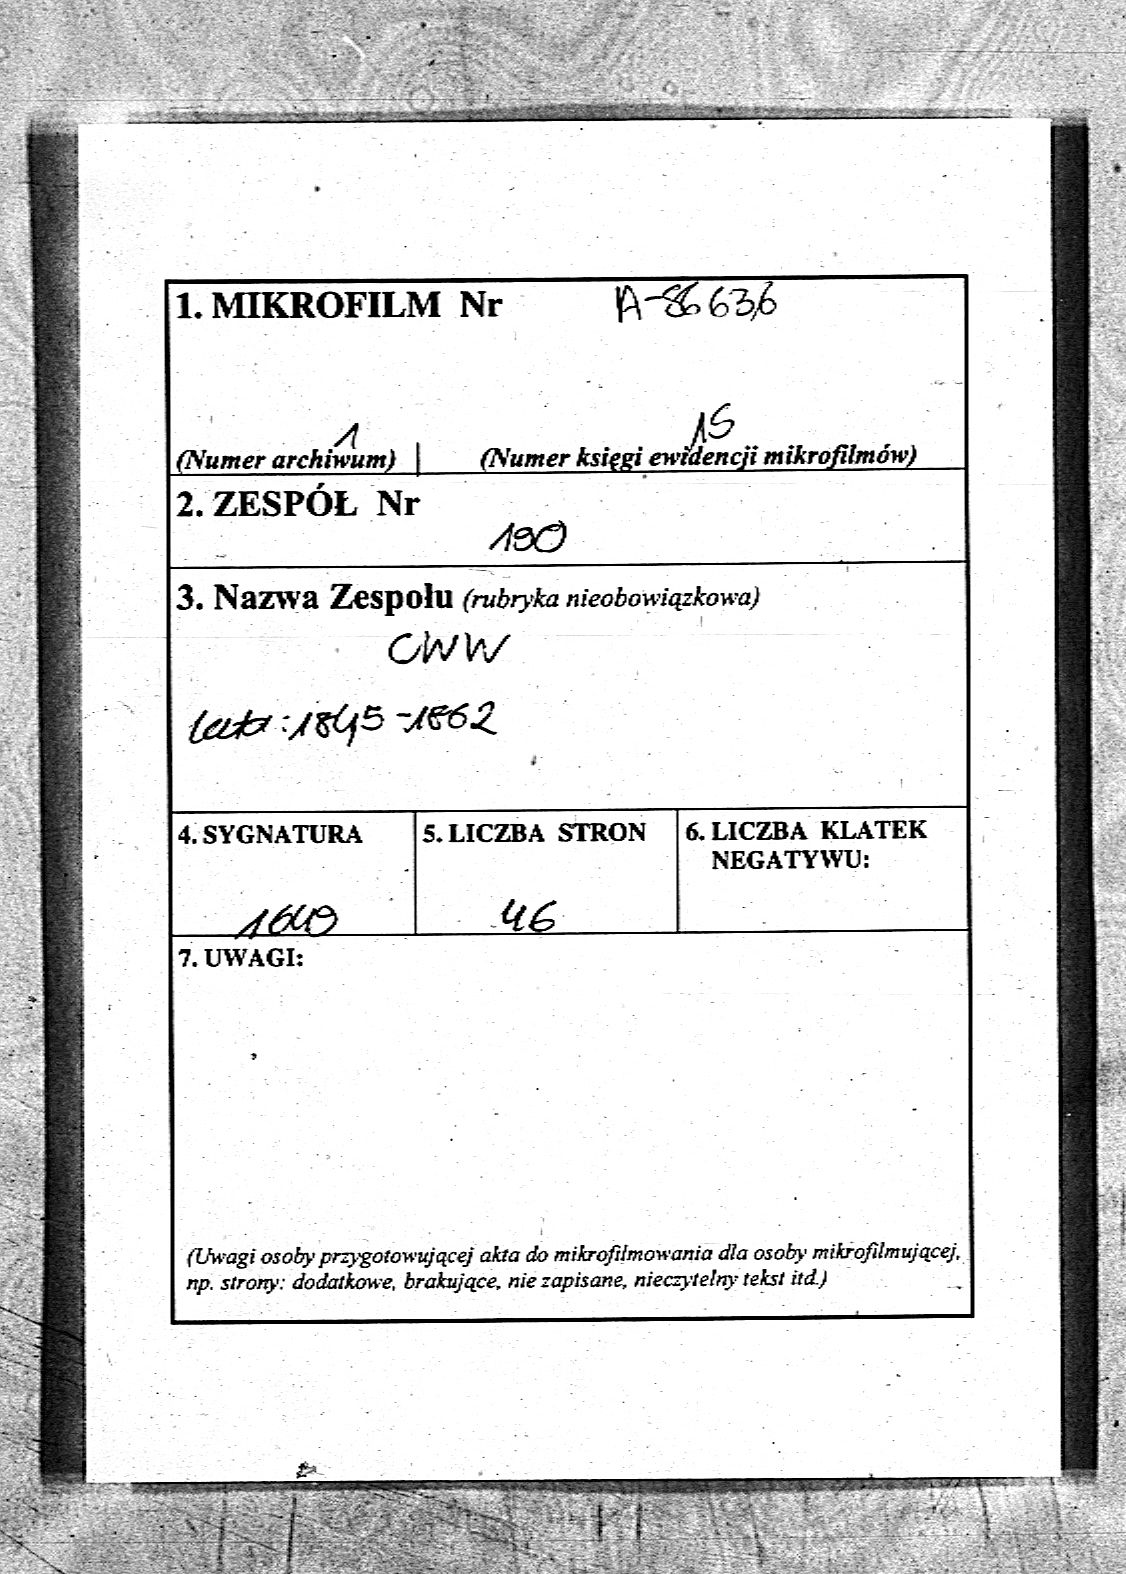 1. MIKROFILM Nr A-86636
1 15
(Numer archiwum) (Numer księgi ewidencji mikrofilmów)
2. ZESPÓŁ Nr
190
3. Nazwa Zespołu (rubryka nieobowiązkowa)
CWW
lata: 1845-1862
4. SYGNATURA 5. LICZBA STRON 6. LICZBA KLATEK
NEGATYWU:
1640 46
7. UWAGI:
(Uwagi osoby przygotowującej akta do mikrofilmowania dla osoby mikrofilmującej,
np. strony: dodatkowe, brakujące, nie zapisane, nieczytelny tekst itd.)